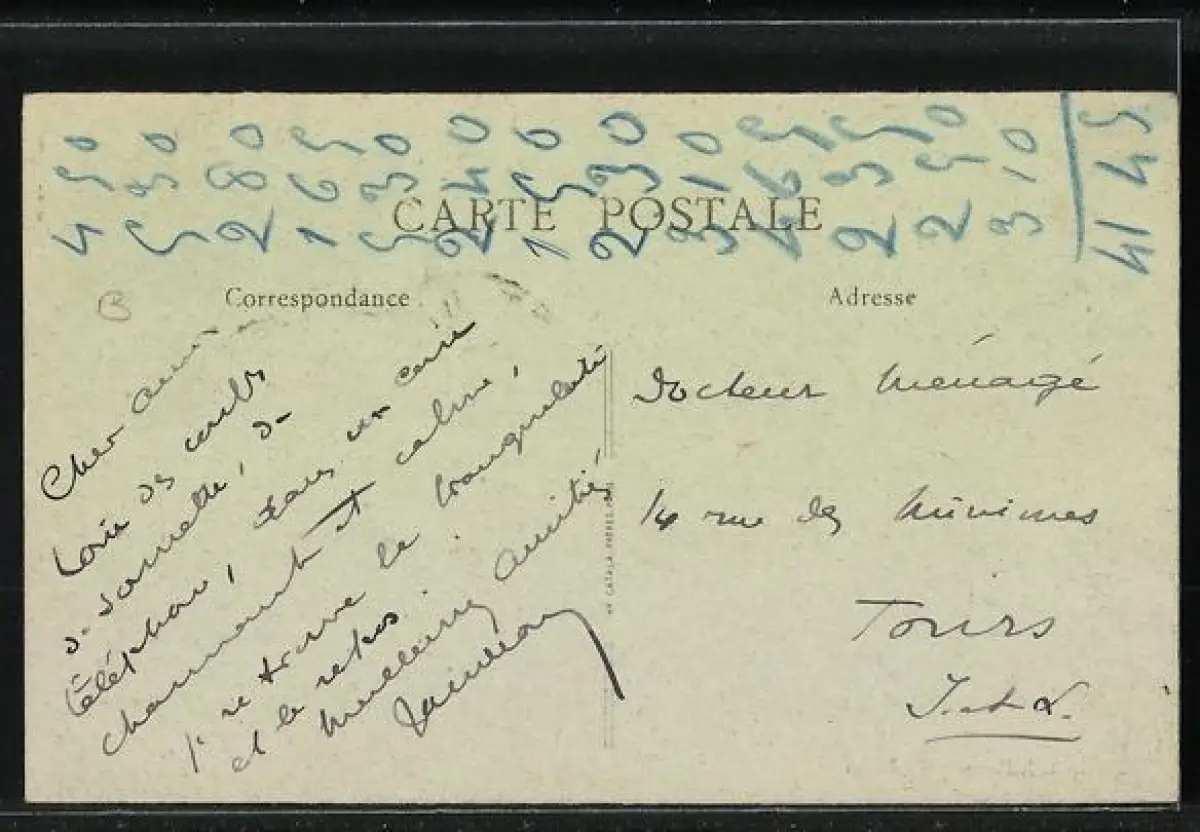 4 50
5 30
2 80
1 65
5 30
2 40
1 50
2 30
3 10
4 65
2 35
2 50
3 10
41 45
CARTE POSTALE
Correspondance
Adresse
B
Cher ami
Loin des coups
de sonnette, de
téléphone, dans un coin
charmant et calme,
je retrouve la tranquillité
et le repos.
Meilleures amitiés
Docteur Ménagé
14 rue des Minimes
Tours
I. et L.